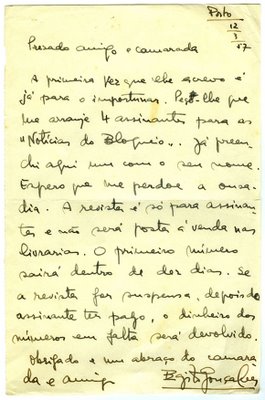 Porto
12
3
57
Prezado amigo e camarada
A primeira vez que lhe escrevo é
já para o importunar. Peço-lhe que
me arranje 4 assinantes para as
"Notícias do Bloqueio". Já preen-
chi aqui um com o seu nome.
Espero que me perdoe a ousa-
dia. A revista é só para assinan-
tes e não será posta à venda nas
livrarias. O primeiro número
sairá dentro de dez dias. Se
a revista for suspensa, depois do
assinante ter pago, o dinheiro dos
números em falta será devolvido.
Obrigado e um abraço do camara
da e amigo
Egito Gonçalves